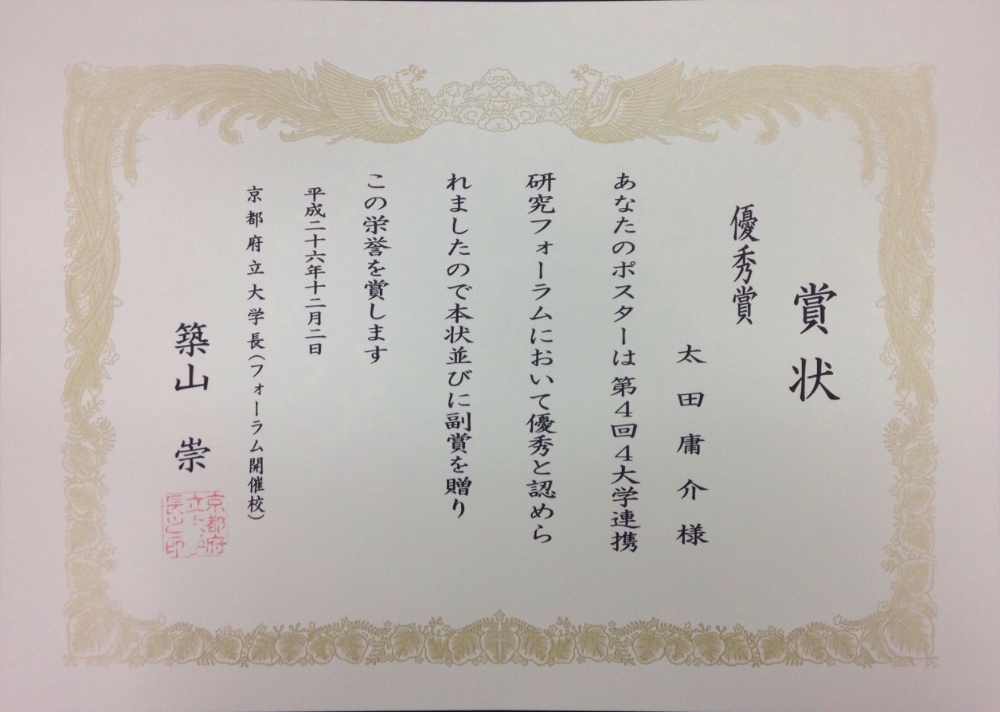 賞状
優秀賞
太田庸介様
あなたのポスターは第4回4大学連携
研究フォーラムにおいて優秀と認めら
れましたので本状並びに副賞を贈り
この栄誉を賞します
平成二十六年十二月二日
京都府立大学長(フォーラム開催校)
築山 崇
京都府
立
長之印